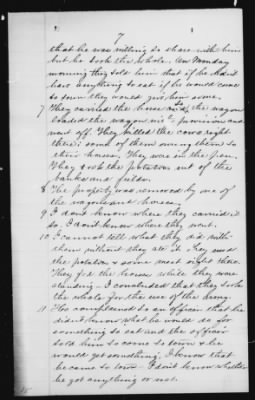 7
that he was willing to share with him
but he took the whole. On Monday
morning they told him that if he didn't
have anything to eat if he would come
to town they would give him some.
7 They carried the horse and the wagon
loaded the wagon with provisions and
went off. They killed the cows right
there; some of them
their horses. They was in the pen.
They took the potatoes out of the
banks and fodder.
8 The property was removed by one of
the wagons and horses.
9 I don't know where they carried it
to. I don't know where they went.
10 I cannot tell what they did with
them without they ate it. They used
the potatoes & some meat right there.
They fed the horses while they were
standing - I concluded that they took
the whole for the use of the Army.
11 He complained to an officer that he
didn't know what he would do for
something to eat and the officer
told him to come to town & he
would get something. I know that
he came to town. I don't know whether
he got anything or not.